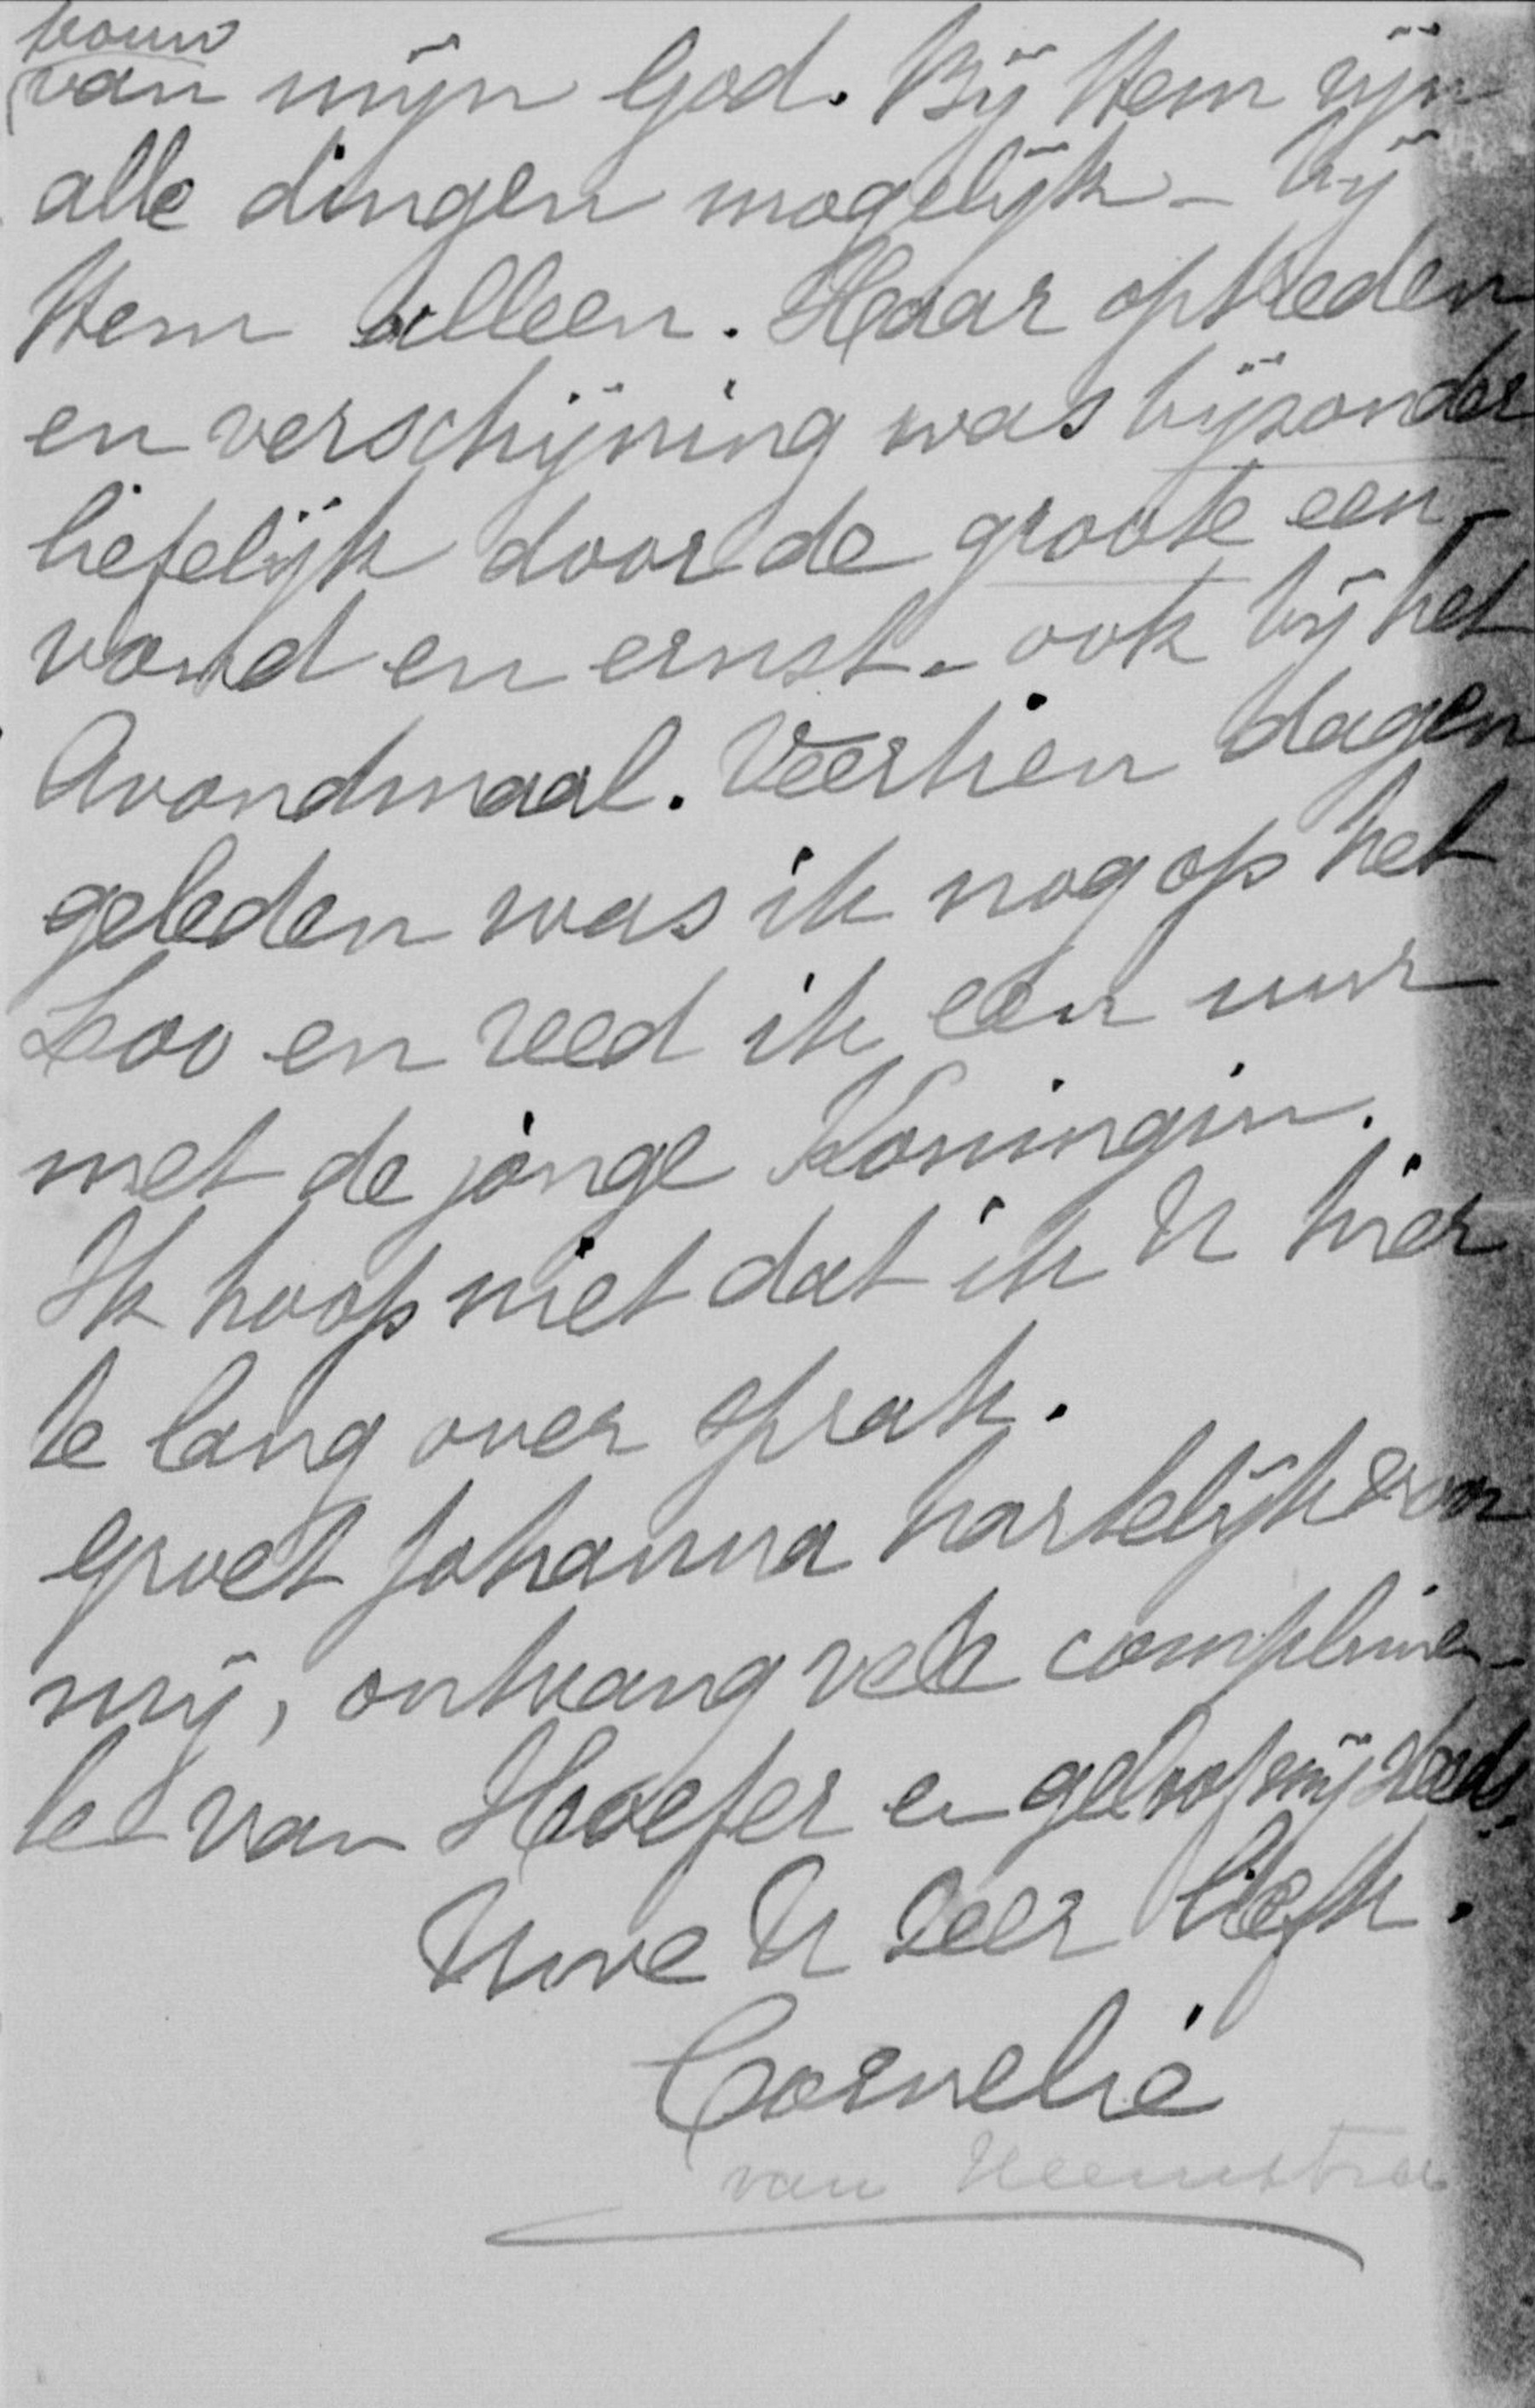 trouw
van mijn God. Bij Hem zijn
alle dingen mogelijk - bij
Hem alleen. Haar optreden
en verschijning was bijzonder
liefelijk door de groote een-
voud en ernst - ook bij het
Avondmaal. Veertien dagen
geleden was ik nog op het
Loo en reed ik een uur
met de jonge Koningin.
Ik hoop niet dat ik U hier
te lang over sprak.
Groet Johanna hartelijk van
mij, ontvang vele complimen-
te van Hoefer en geloof mij steeds,
Uwe U zeer liefh.
Cornelie
van Heemstra